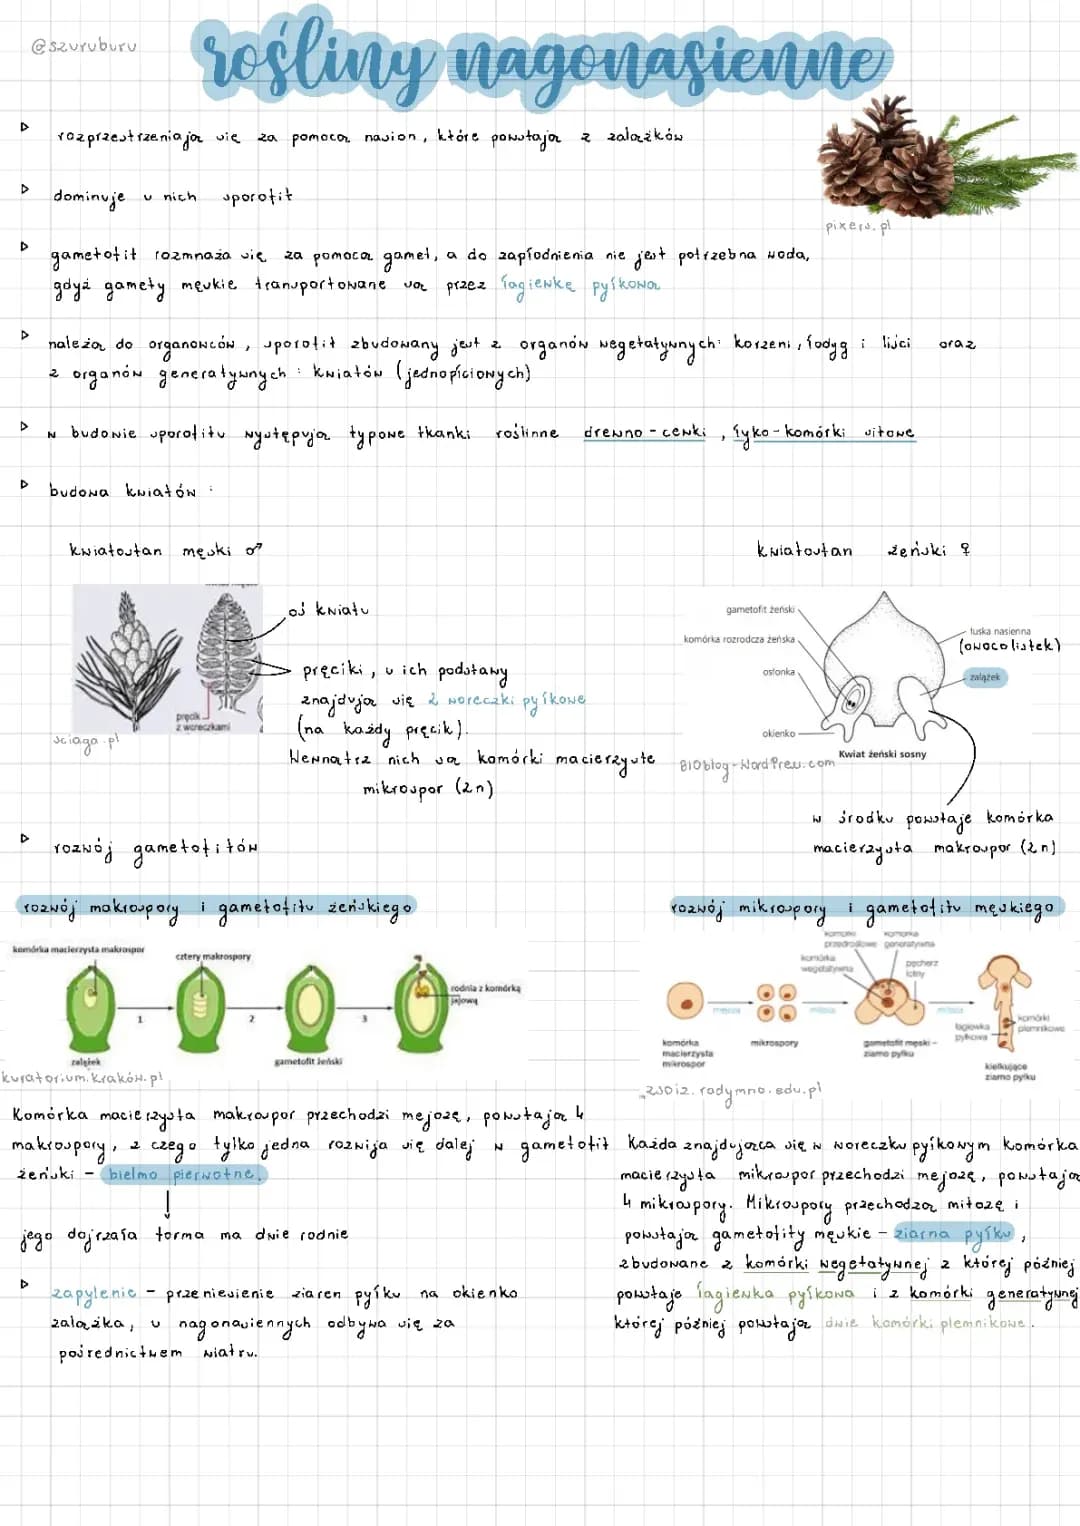 @szuruburu
rośliny nagonasienne
rozprzestrzeniają się za pomocą nasion, które powstają z zalążków
pixers.pl
dominuje u nich sporofit
gametofit rozmnaża się za pomocą gamet, a do zapłodnienia nie jest potrzebna woda,
gdyż gamety męskie transportowane są przez łagienkę pyłkową
należą do organowców, sporofit zbudowany jest z organów wegetatywnych: korzeni, łodyg i liści oraz
z organów generatywnych: kwiatów (jednopłciowych)
w budowie sporofitu występują typowe tkanki roślinne drewno - cewki, łyko - komórki sitowe
budowa kwiatów:
kwiatostan męski ♂
kwiatostan żeński ♀
oś kwiatu
pręciki, u ich podstawy
znajdują się 2 woreczki pyłkowe
(na każdy pręcik).
Wewnątrz nich są komórki macierzyste
mikrospor (2n)
pręcik
z woreczkami
sciaga.pl
gametofit żeński
komórka rozrodcza żeńska
osłonka
okienko
łuska nasienna
(owocolistek)
zalążek
Kwiat żeński sosny
BIOblog - WordPress.com
w środku powstaje komórka
macierzysta makrospor (2n)
rozwój gametofitów
rozwój makrospory i gametofitu żeńskiego
komórka macierzysta makrospor
cztery makrospory
rodnia z komórką
jajową
1
2
3
zalążek
gametofit żeński
kuratorium.kraków.pl
Komórka macierzysta makrospor przechodzi mejozę, powstają 4
makrospory, z czego tylko jedna rozwija się dalej w gametofit
żeński - bielmo pierwotne.
jego dojrzała forma ma dwie rodnie
zapylenie - przeniesienie ziaren pyłku na okienko
zalążka, u nagonasiennych odbywa się za
pośrednictwem wiatru.
rozwój mikrospory i gametofitu męskiego
komórki
przedroślowe
komórka
generatywna
komórka
wegetatywna
pęcherz
lotny
mejoza
mitoza
mitoza
łagiewka
pyłkowa
komórki
plemnikowe
komórka
macierzysta
mikrospor
mikrospory
gametofit męski -
ziarno pyłku
kiełkujące
ziarno pyłku
zsoi2.radymno.edu.pl
Każda znajdująca się w woreczku pyłkowym komórka
macierzysta mikrospor przechodzi mejozę, powstają
4 mikrospory. Mikrospory przechodzą mitozę i
powstają gametofity męskie - ziarna pyłku,
zbudowane z komórki wegetatywnej z której później
powstaje łagienka pyłkowa i z komórki generatywnej
której później powstają dwie komórki plemnikowe.